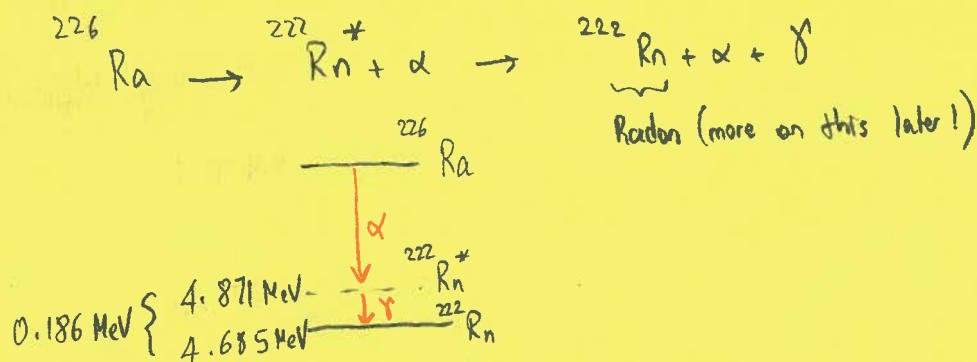 ²²⁶Ra → ²²²Rn* + α → ²²²Rn + α + γ
Radon (more on this later!)
²²⁶Ra
α
²²²Rn*
4.871 MeV
γ
0.186 MeV {
²²²Rn
4.685 MeV